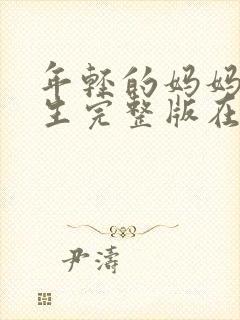 年轻的妈妈
生完整版在
尹濤